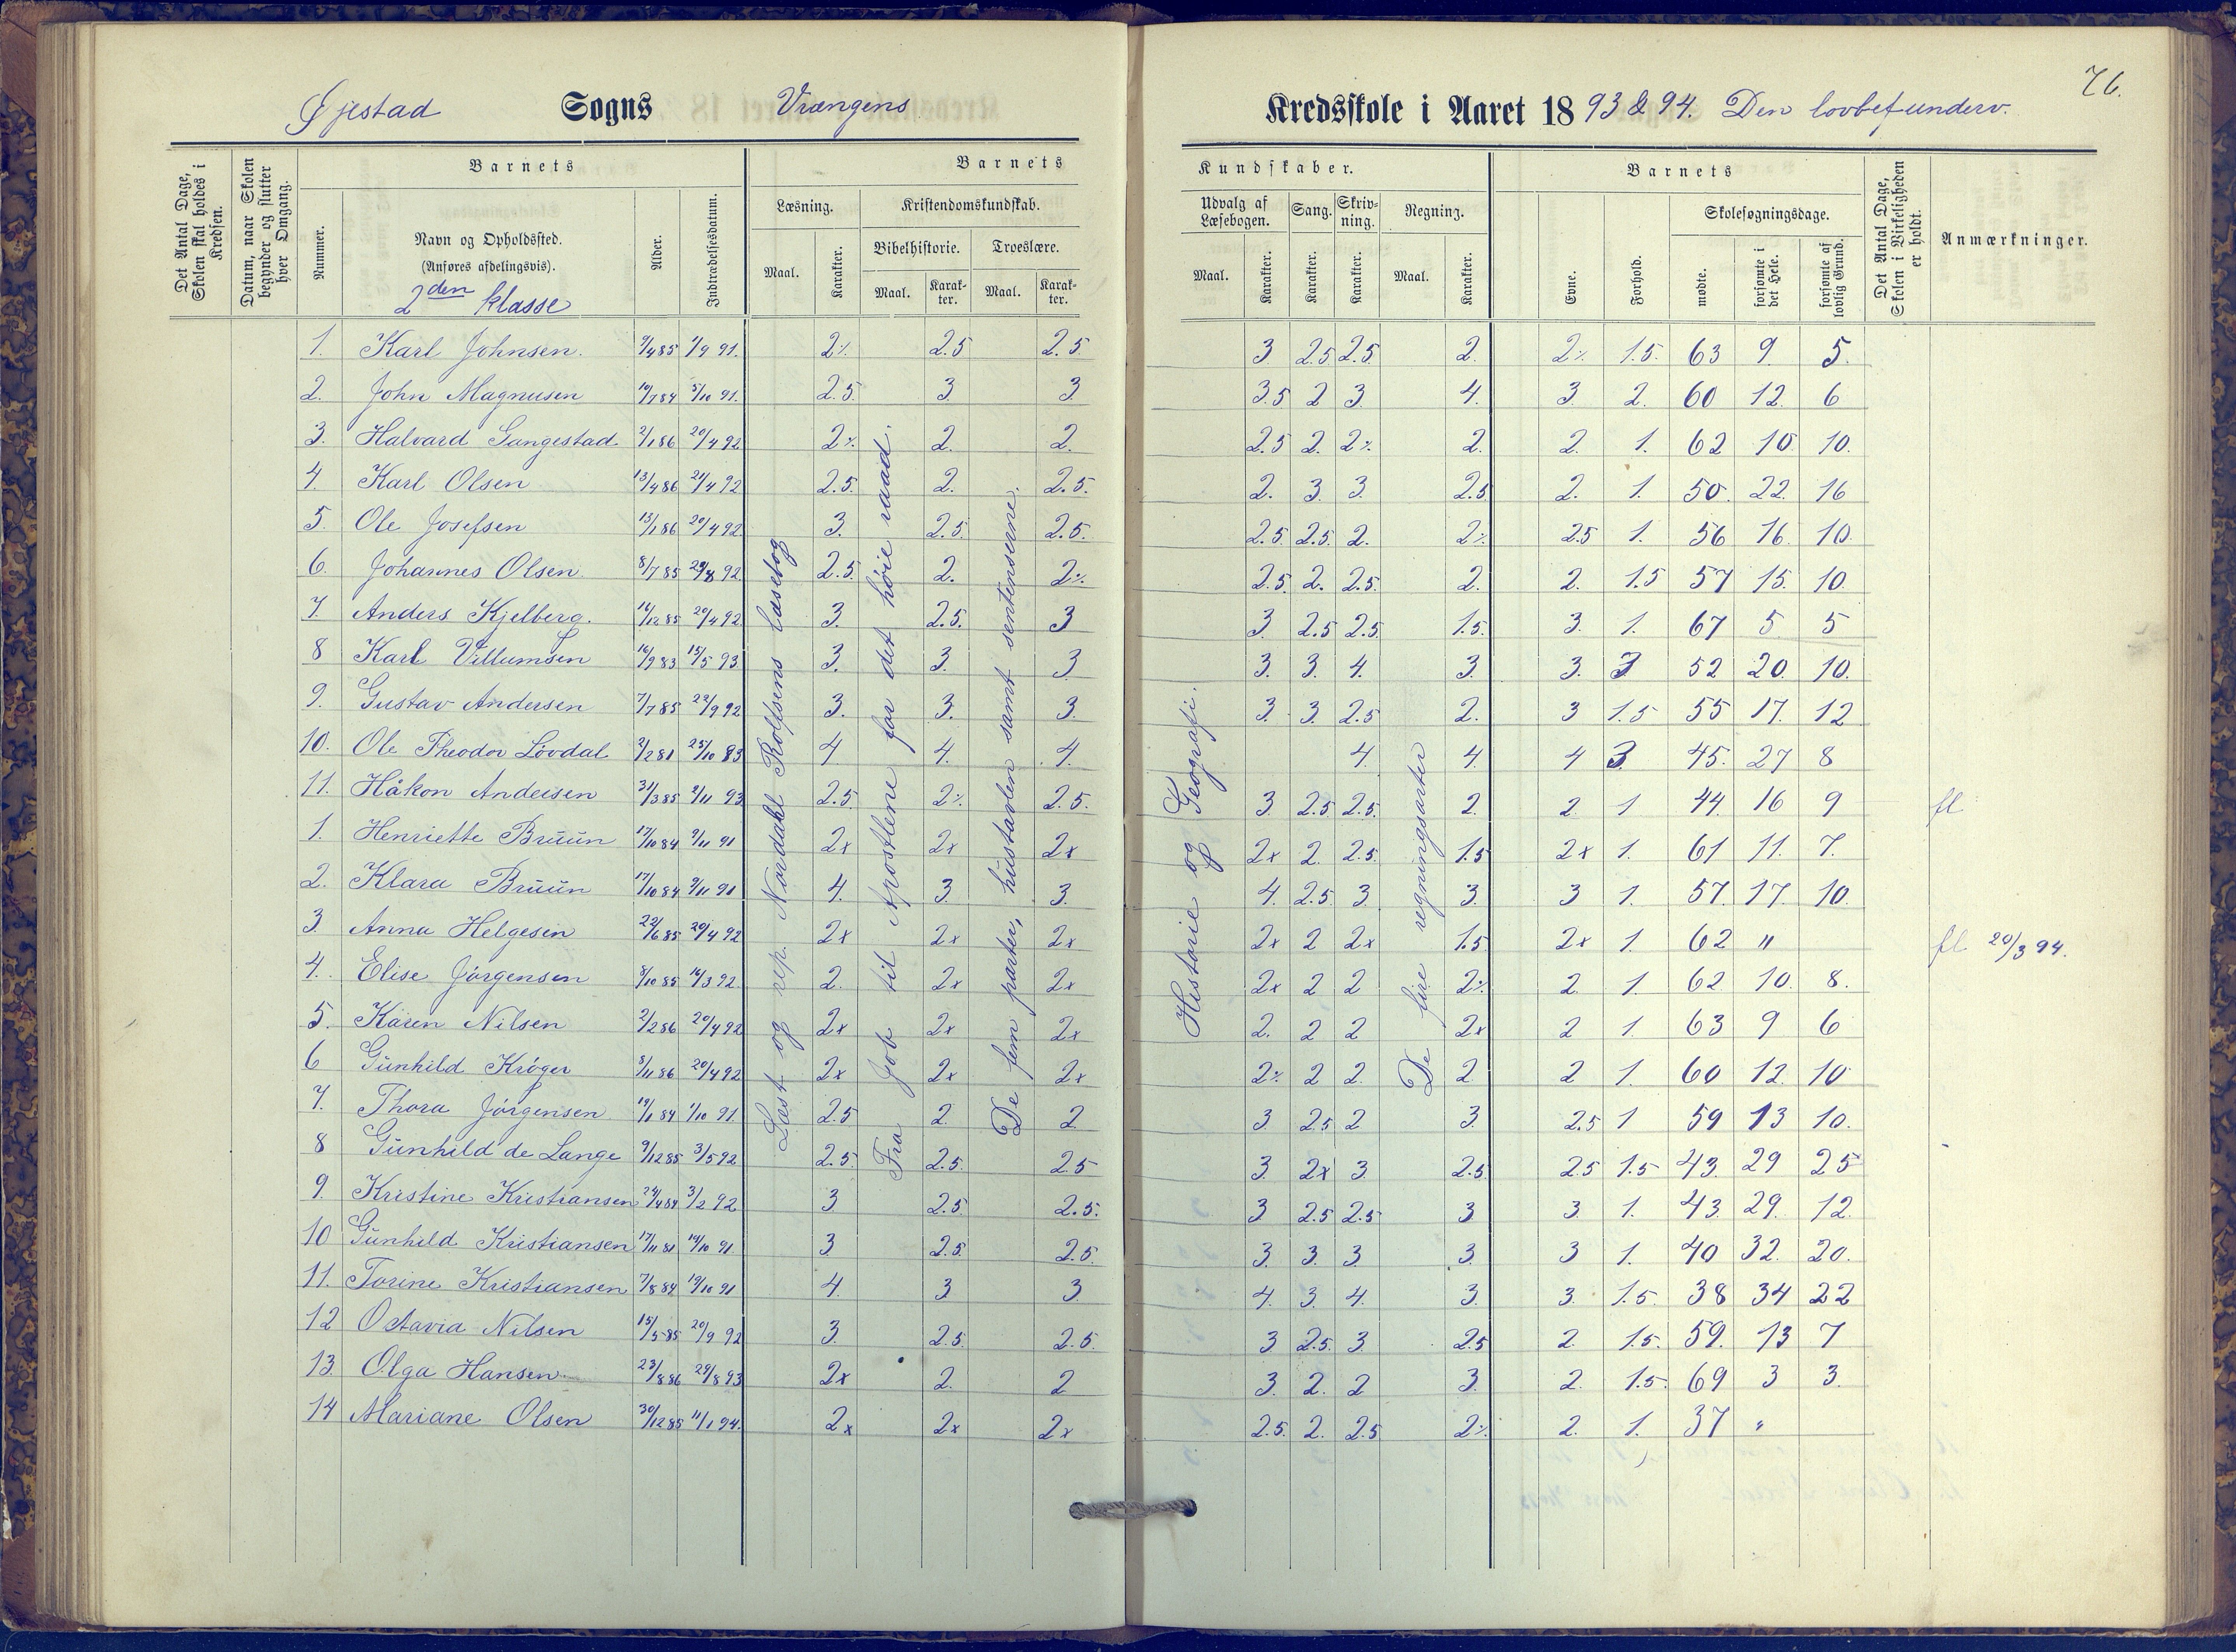 76.
Øjestad Sogns Vrængens Kredsskole i Aaret 1893 & 94. Den lovbef underv.
Det Antal Dage, Skolen skal holdes i Kredsen.
Datum, naar Skolen begynder og slutter hver Omgang.
Barnets
Nummer.
Navn og Opholdssted.
(Anføres afdelingsvis).
2den klasse
Alder.
Indtrædelsesdatum.
Barnets Kundskaber.
Læsning.
Maal. Karakter.
Kristendomskundskab.
Bibelhistorie. Troeslære.
Maal. Karakter. Maal. Karakter.
Udvalg af Læsebogen. Sang. Skrivning. Regning.
Maal. Karakter. Karakter. Karakter. Maal. Karakter.
Barnets
Evne. Forhold.
Skolesøgningsdage.
mødte. forsømte i det Hele. forsømte af lovlig Grund.
Det Antal Dage, Skolen i Virkeligheden er holdt.
Anmærkninger.
Læst og rep. Nordahl Rolfsens læsebog
Fra Job til Apostlene for det høie raad.
De fem parter, hustavlen samt sentenserne.
Historie og Geografi.
De fire regningsarter
1. Karl Johnsen. 9/4 85 1/9 91. 2% 2.5 2.5. 3 2.5 2.5. 2. 2% 1.5. 63 9. 5.
2. John Magnusen 10/7 84 5/10 91. 2.5. 3. 3. 3.5 2 3. 4. 3. 2. 60 12. 6
3. Halvard Langestad 2/1 86 20/4 92 2% 2. 2. 2.5 2. 2% 2. 2. 1. 62 10. 10.
4. Karl Olsen 13/4 86 21/4 92 2.5. 2. 2.5. 2. 3. 3. 2.5 2. 1. 50. 22. 16
5. Ole Josefsen 13/1 86 20/4 92 3. 2.5. 2.5. 2.5. 2.5. 2. 2% 2.5 1. 56 16. 10.
6. Johannes Olsen. 8/7 85 29/8 92 2.5. 2. 2% 2.5. 2. 2.5. 2. 2. 1.5 57 15. 10.
7. Anders Kjelberg. 16/12 85 20/4 92 3. 2.5. 3 3. 2.5 2.5. 1.5. 3. 1. 67 5. 5
8 Karl Villumsen 16/9 83 15/5 93. 3. 3. 3. 3. 3. 4. 3. 3. 3 52 20. 10.
9. Gustav Andersen 7/7 85 22/9 92 3. 3. 3. 3. 3. 2.5 2. 3 1.5 55 17. 12
10. Ole Theodor Løvdal 2/2 81 25/10 93 4 4. 4. 4. 4. 4 3. 45. 27 8
11. Håkon Andersen 31/3 85 2/11 93 2.5. 2% 2.5. 3 2.5 2.5. 2. 2. 1 44. 16 9 fl
1. Henriette Bruun 17/10 84 9/11 91 2x 2x 2x 2x 2. 2.5. 1.5 2x 1. 61 11. 7.
2. Klara Bruun 17/10 84 9/11 91 4. 3. 3. 4. 2.5. 3. 3. 3 1. 57. 17. 10.
3. Anna Helgesen 22/6 85 20/4 92 2x 2x 2x 2x 2 2x 1.5 2x 1. 62 " fl 20/3 94.
4. Elise Jörgensen 8/10 85 16/3 92. 2. 2x 2x 2x 2 2 2% 2. 1. 62 10. 8.
5. Karen Nilsen 2/2 86 20/4 92 2x 2x 2x 2. 2 2 2x 2 1. 63 9 6
6 Gunhild Kröger 8/11 86 20/4 92 2x 2x 2x 2% 2 2. 2 2 1. 60 12. 10
7. Thora Jörgensen 19/1 84 1/10 91. 2.5 2. 2 3. 2.5 2 3. 2.5 1 59 13 10.
8 Gunhild de Lange 9/12 85 3/5 92 2.5. 2.5. 2.5 3. 2x 3. 2.5 2.5 1.5 43. 29 25
9. Kristine Kristiansen 24/4 84 3/2 92 3 2.5 2.5. 3. 2.5 2.5 3 3. 1. 43. 29. 12.
10 Gunhild Kristiansen 17/11 81 14/10 91 3. 2.5. 2.5. 3. 3. 3 3. 3 1. 40 32. 20.
11. Torine Kristiansen 7/8 84 19/10 91 4. 3 3. 4. 3. 4. 3. 3. 1.5. 38 34 22
12 Octavia Nilsen 15/5 85 20/9 92 3. 2.5. 2.5. 3 2.5. 3. 2.5 2. 1.5. 59. 13 7
13. Olga Hansen 23/8 86 29/8 93 2x 2. 2 3. 2. 2 3. 2. 1.5. 69 3 3.
14 Mariane Olsen 30/12 85 11/1 94. 2x 2x 2x 2.5. 2. 2.5 2% 2. 1. 37 "